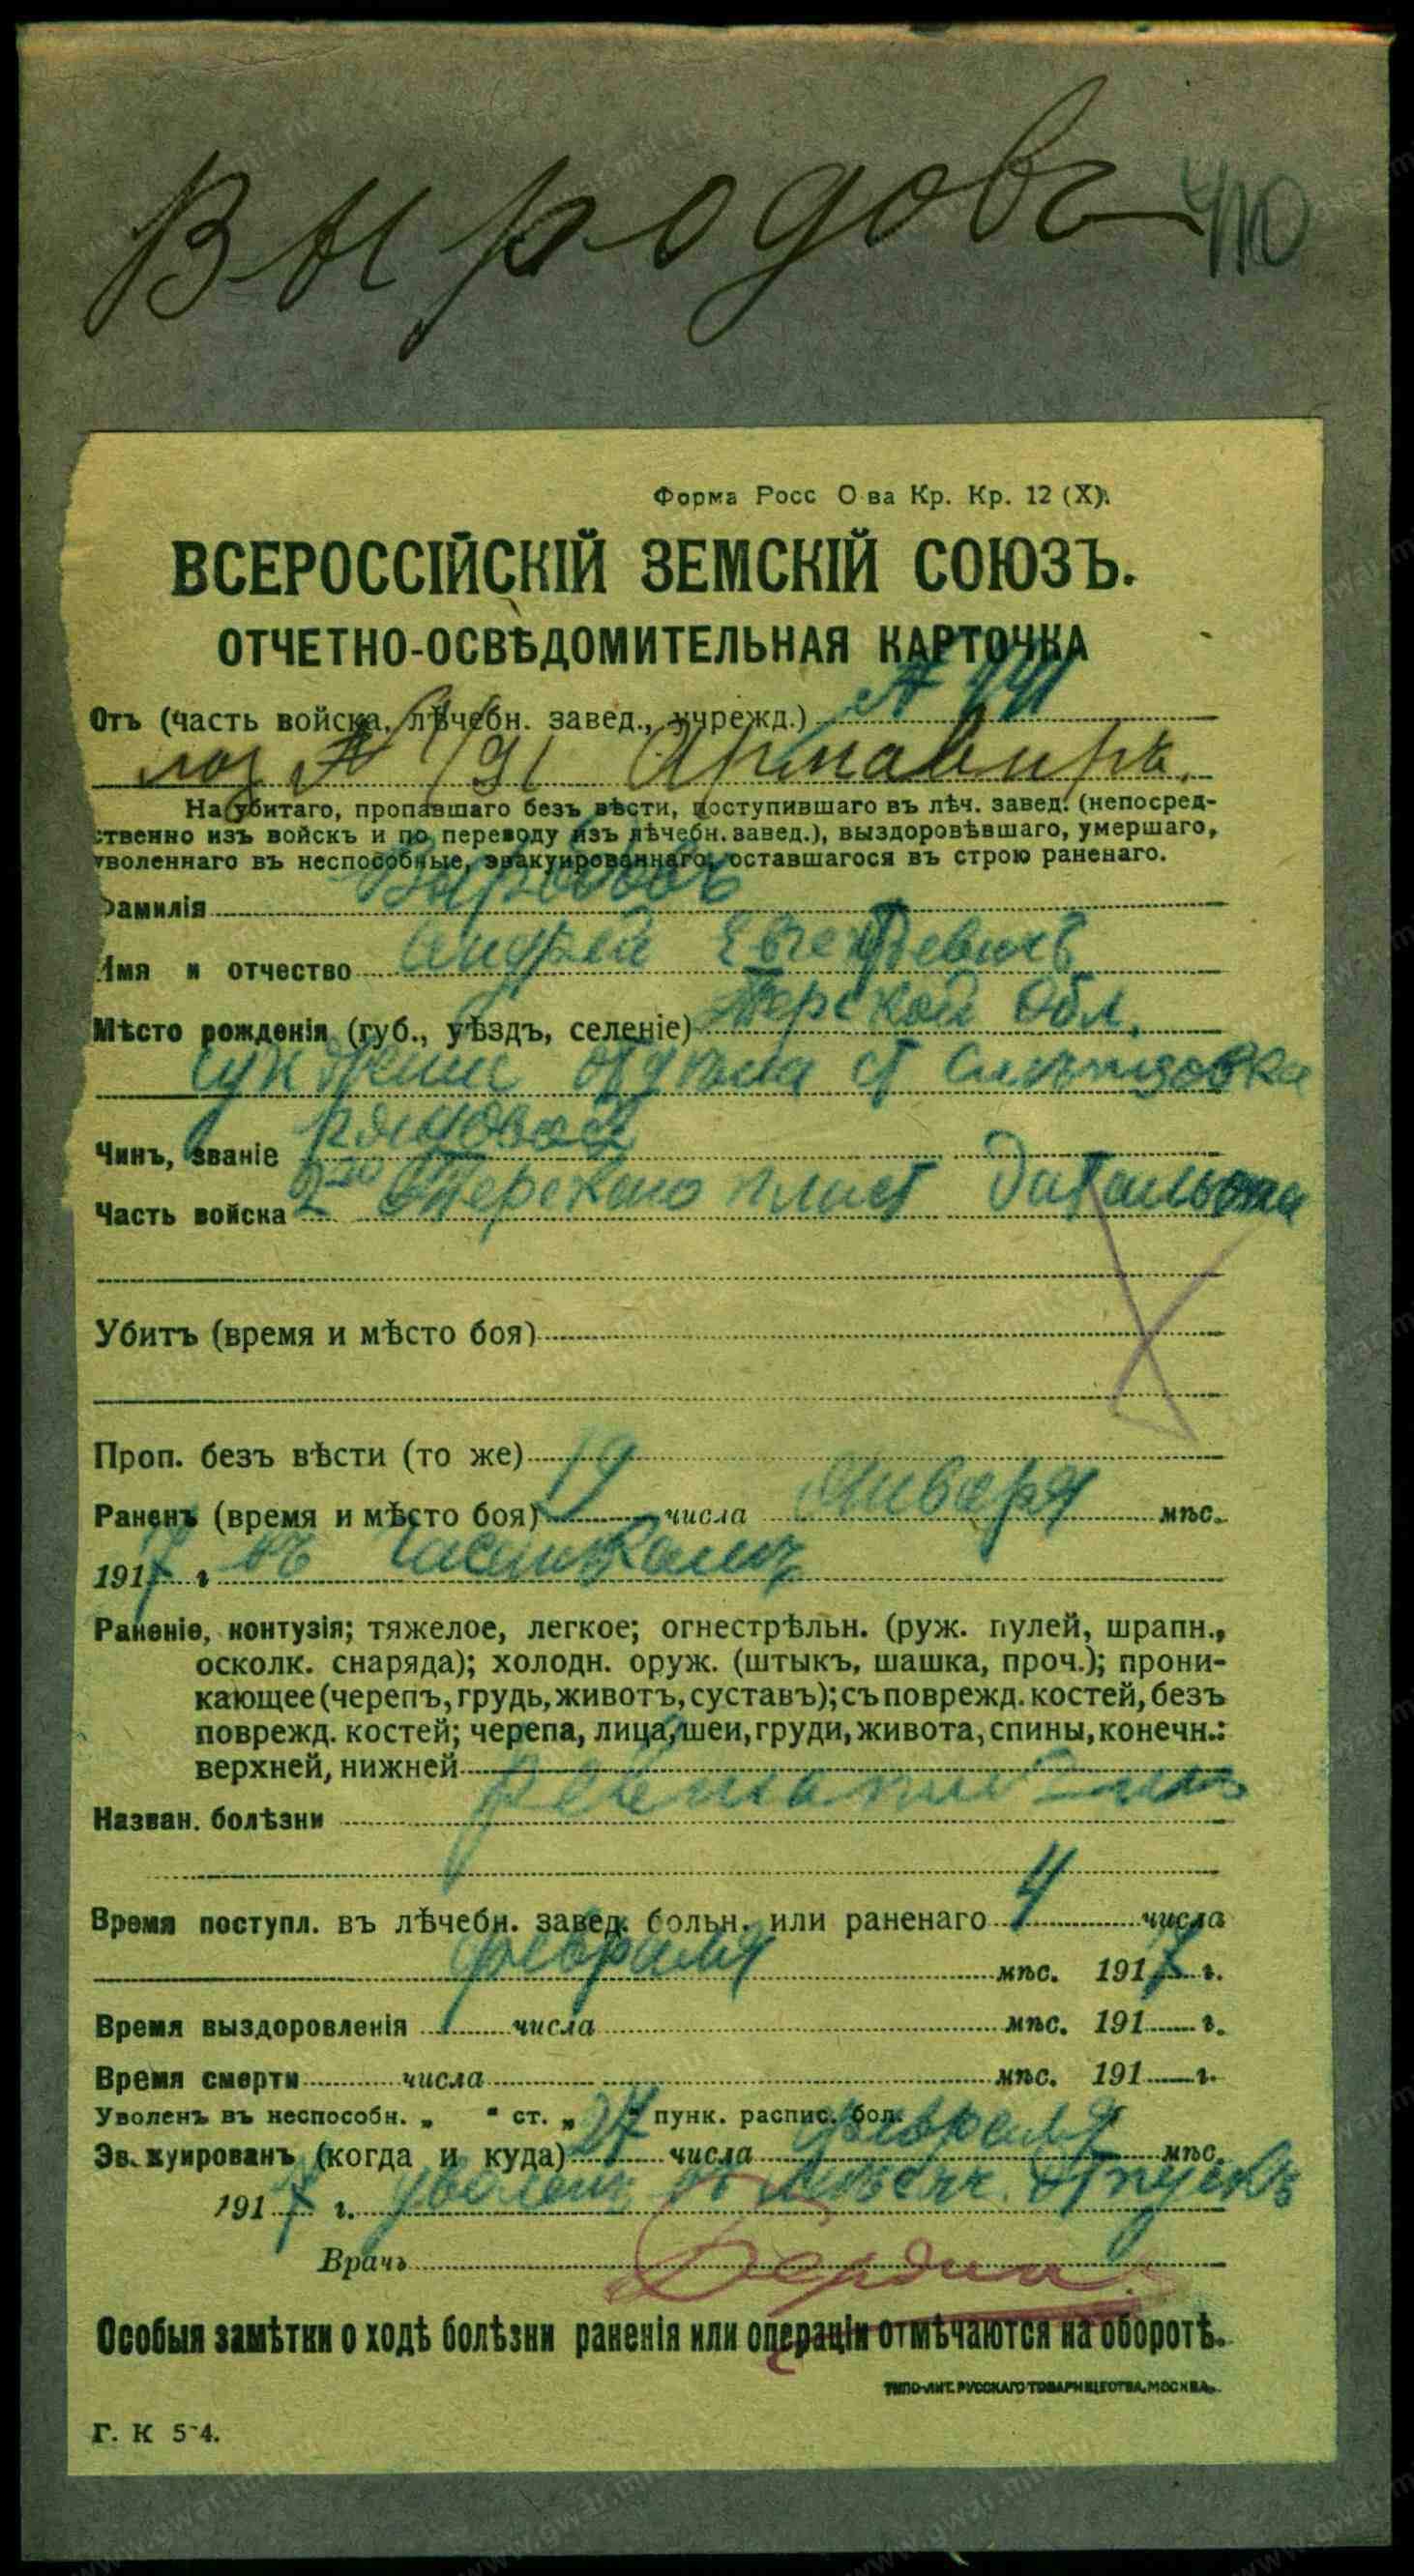 Выродовъ 410
Форма Росс О-ва Кр. Кр. 12 (X).
ВСЕРОССІЙСКІЙ ЗЕМСКІЙ СОЮЗЪ.
ОТЧЕТНО-ОСВѢДОМИТЕЛЬНАЯ КАРТОЧКА
Отъ (часть войска, лѣчебн. завед., учрежд.)
лаз № 91 Армавиръ.
На убитаго, пропавшаго безъ вѣсти, поступившаго въ лѣч. завед. (непосред-
ственно изъ войскъ и по переводу изъ лѣчебн. завед.), выздоровѣвшаго, умершаго,
уволеннаго въ неспособные, эвакуированнаго, оставшагося въ строю раненаго.
Фамилія Выродовъ
Имя и отчество Андрей
Мѣсто рожденія (губ., уѣздъ, селеніе) Терской Обл.
отдѣла ст
Чинъ, званіе рядовой
Часть войска 2го Терскаго пласт баталіона
Убитъ (время и мѣсто боя)
Проп. безъ вѣсти (то же)
Раненъ (время и мѣсто боя) 19 числа Января мѣс.
1917 г въ
Раненіе, контузія; тяжелое, легкое; огнестрѣльн. (руж. пулей, шрапн.,
осколк. снаряда); холодн. оруж. (штыкъ, шашка, проч.); прони-
кающее (черепъ, грудь, животъ, суставъ); съ поврежд. костей, безъ
поврежд. костей; черепа, лица, шеи, груди, живота, спины, конечн.:
верхней, нижней
Назван. болѣзни
Время поступл. въ лѣчебн. завед. больн. или раненаго 4 числа
февраля мѣс. 1917 г.
Время выздоровленія числа мѣс. 191 г.
Время смерти числа мѣс. 191 г.
Уволенъ въ неспособн. „ " ст. „ " пунк. распис. бол.
Эвакуированъ (когда и куда) 27 числа февраля мѣс.
1917 г. уволенъ въ отпускъ
Врачъ
Особыя замѣтки о ходѣ болѣзни раненія или операціи отмѣчаются на оборотѣ.
ТИПО-ЛИТ. РУССКАГО ТОВАРИЩЕСТВА, МОСКВА.
Г. К 5-4.